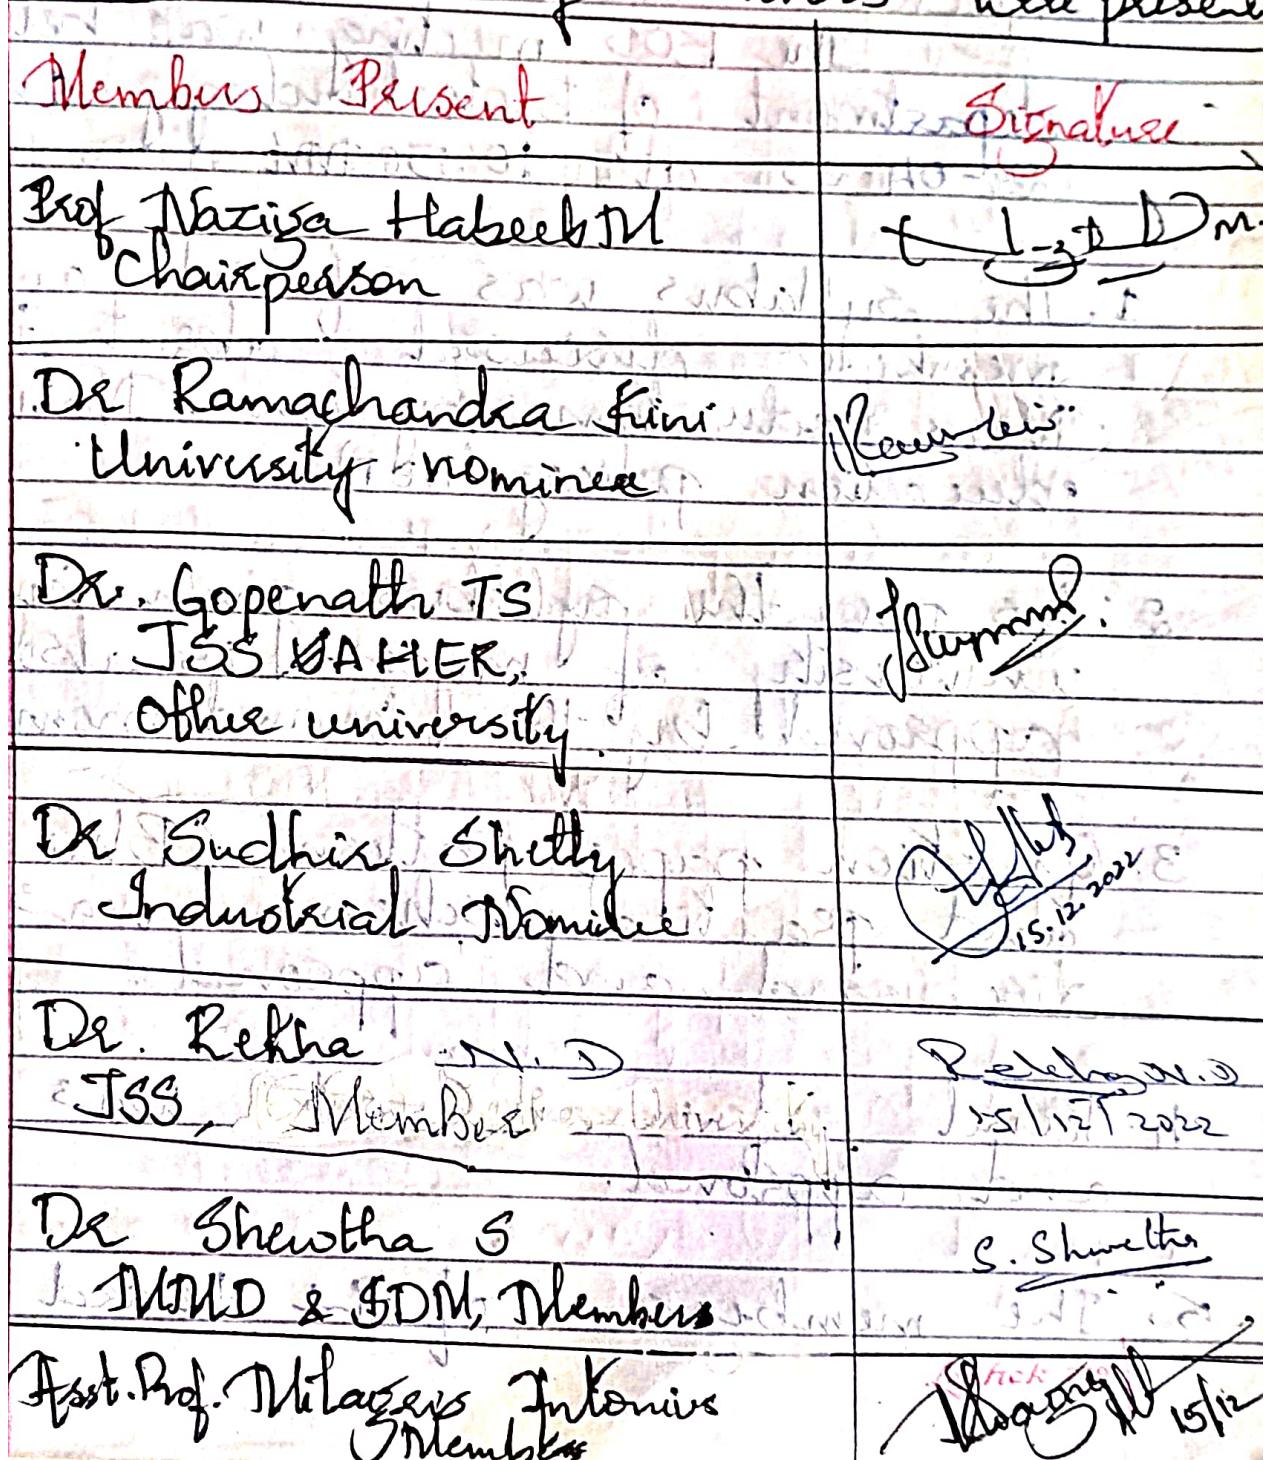 were present
Members Present
Signature
Prof Naziya Habeeb M
Chairperson
Dr Ramachandra Kini
University nominee
Dr. Gopenath TS
JSS AHER,
Other university.
Dr Sudhir Shetty
Industrial Nominee
15.12.2022
Dr. Rekha N. D
JSS, Member
Rekha N.D
15/12/2022
Dr Shewtha S
S. Shwetha
MMD & SDM, Members
Asst. Prof. Milagris Antonius
Members
15/12